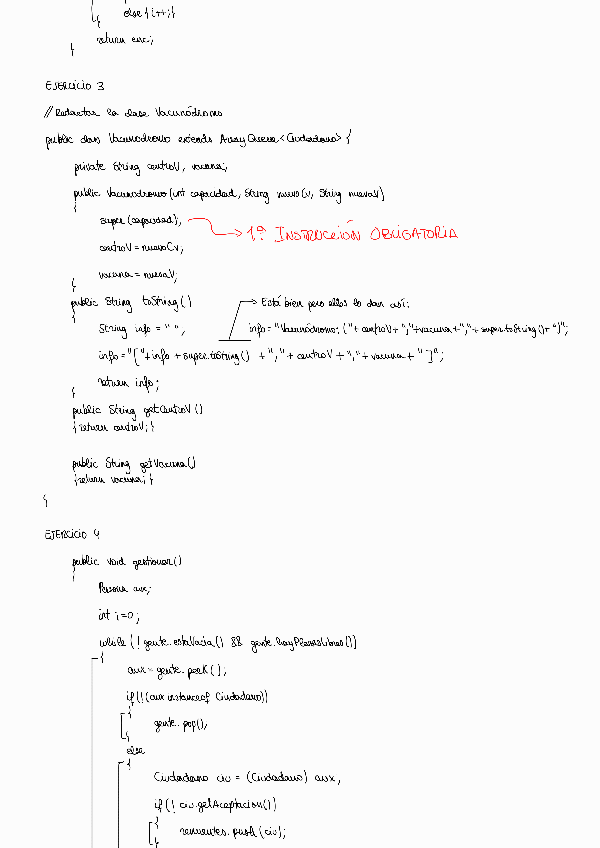 else {i++;}
}
return enc;
}
EJERCICIO 3
// Redactar la clase Vacunódromo
public class Vacunodromo extends ArrayQueue<Ciudadano> {
private String centroV, vacuna;
public Vacunodromo (int capacidad, String nuevoCv, String nuevaV)
{
super (capacidad); → 1º INSTRUCCIÓN OBLIGATORIA
centroV = nuevoCv;
vacuna = nuevaV;
}
public String toString () → Está bien pero ellos lo dan así:
{
String info = " "; info = "Vacunódromo: (" + centroV + "," + vacuna + "," + super.toString () + ")";
info = "[" + info + super.toString() + "," + centroV + "," + vacuna + "]";
return info;
}
public String getCentroV ()
{ return centroV; }
public String getVacuna()
{ return vacuna; }
}
EJERCICIO 4
public void gestionar()
{
Persona aux;
int i=0;
while (! gente.estaVacia() && gente.hayPlazasLibres())
{
aux = gente.peek ();
if (!(aux instanceof Ciudadano))
{
gente.pop();
}
else
{
Ciudadano ciu = (Ciudadano) aux;
if (! ciu.getAceptacion())
{
renuentes.push (ciu);
}